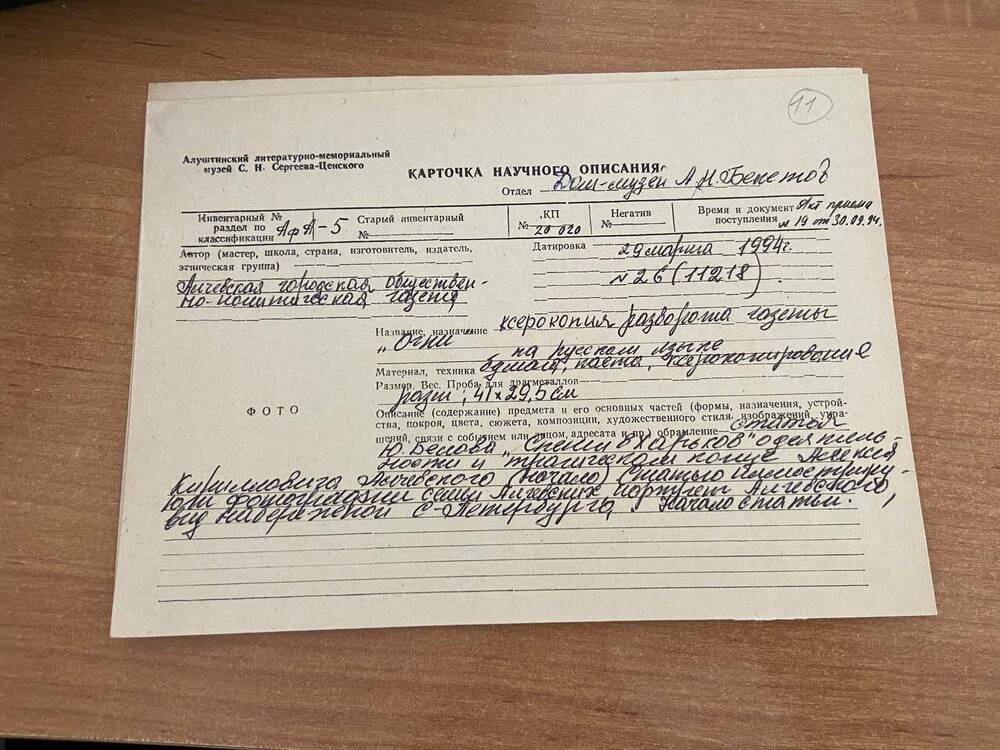 11
Алуштинский литературно-мемориальный
музей С. Н. Сергеева-Ценского
КАРТОЧКА НАУЧНОГО ОПИСАНИЯ
Отдел Дом-музей А.Н. Бекетов
Инвентарный №
раздел по
классификации АфА-5
Старый инвентарный
№
КП
№ 20 020
Негатив
№
Время и документ Акт приема
поступления № 19 от 30.09.94.
Автор (мастер, школа, страна, изготовитель, издатель,
этническая группа)
Алчевская городская обществен-
но-политическая газета
Датировка 29 марта 1994г.
№ 26 (11218)
Название, назначение ксерокопия разворота газеты
„Огни"
на русском языке
Материал, техника бумага, паста, ксерокопирование
Размер. Вес. Проба для драгметаллов
разм; 41х29,5 см
ФОТО
Описание (содержание) предмета и его основных частей (формы, назначения, устрой-
ства, покроя, цвета, сюжета, композиции, художественного стиля, изображений, укра-
шений, связи с событием или лицом, адресата и пр.) обрамление статья
Ю. Белова „Спешил в Харьков" о деятель-
ности и трагическом конце Алексея
Кирилловича Алчевского (начало) Статью иллюстриру-
ют фотографии семьи Алчевских портрет Алчевского,
вид набережной С-Петербурга. Начало статьи.